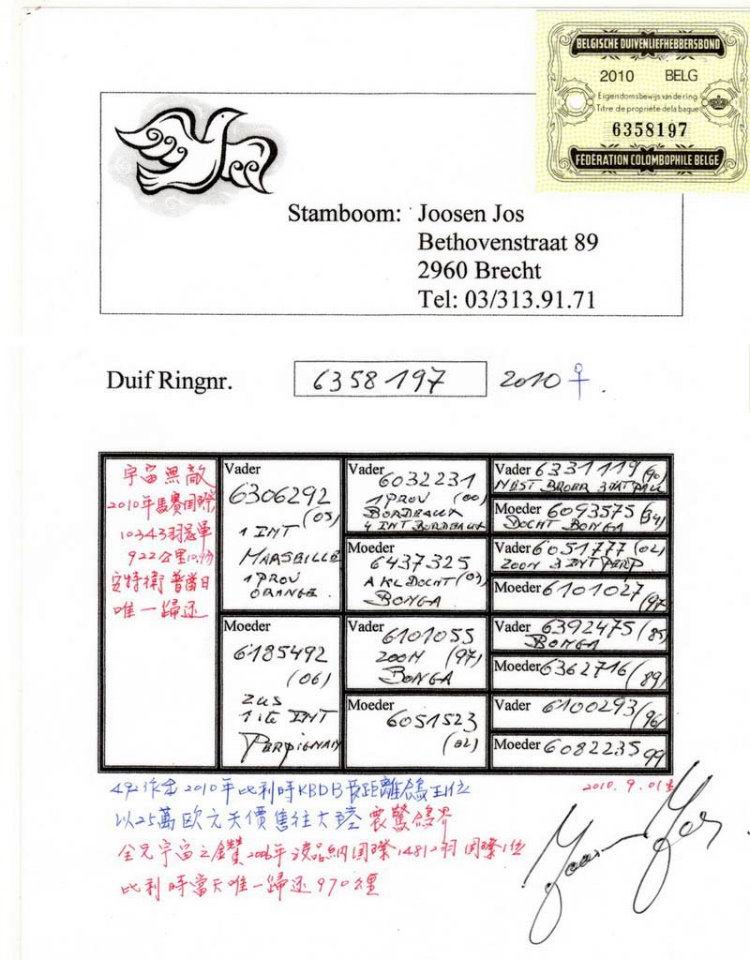 BELGISCHE DUIVENLIEFHEBBERSBOND
2010 BELG
Eigendomsbewijs van de ring
Titre de propriété de la bague
6358197
FÉDÉRATION COLOMBOPHILE BELGE
Stamboom: Joosen Jos
Bethovenstraat 89
2960 Brecht
Tel: 03/313.91.71
Duif Ringnr. 6358197 2010 ♀.
宇宙無敵
2010年馬賽国際
10343羽冠軍
922公里
安特衛普當日
唯一歸还
Vader
6306292
(05)
1 INT
MARSEILLE
1 PROV
ORANGE
Moeder
6185492
(06)
ZUS
1 INT
PERPIGNAN
Vader
6032231
1 PROV (00)
BORDEAUX
4 INT BORDEAUX
Moeder
6437325
(03)
BONGA
Vader
6101055
ZOON (97)
BONGA
Moeder
6051523
(02)
Vader 6331119 (90)
NEST BROER
Moeder 6093575 (94)
DOCHT BONGA
Vader 6051777 (02)
ZOON 3 INT PERP
Moeder 6101027 (97)
Vader 6392475 (85)
BONGA
Moeder 6362716 (89)
Vader 6100293 (96)
Moeder 6082235 99
492作出2010年比利時KBDB長距離鴿王1位
以25萬欧元天價售往大陸 震驚鴿界
2010.9.01生
全兄宇宙之鑽2006年波品納国際14810羽国際1位
比利時當天唯一歸还970公里
Joosen Jos